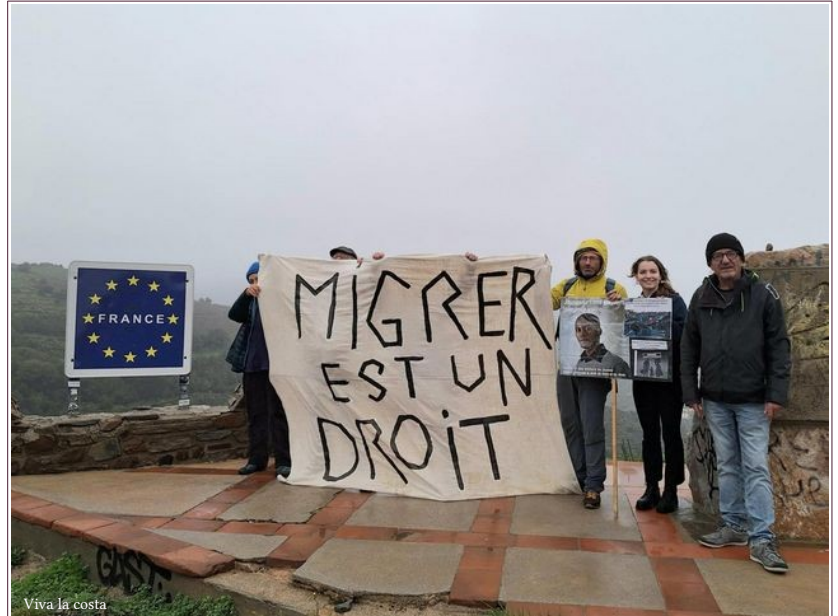 FRANCE
MIGRER
EST UN
DROiT
GAST
Viva la costa